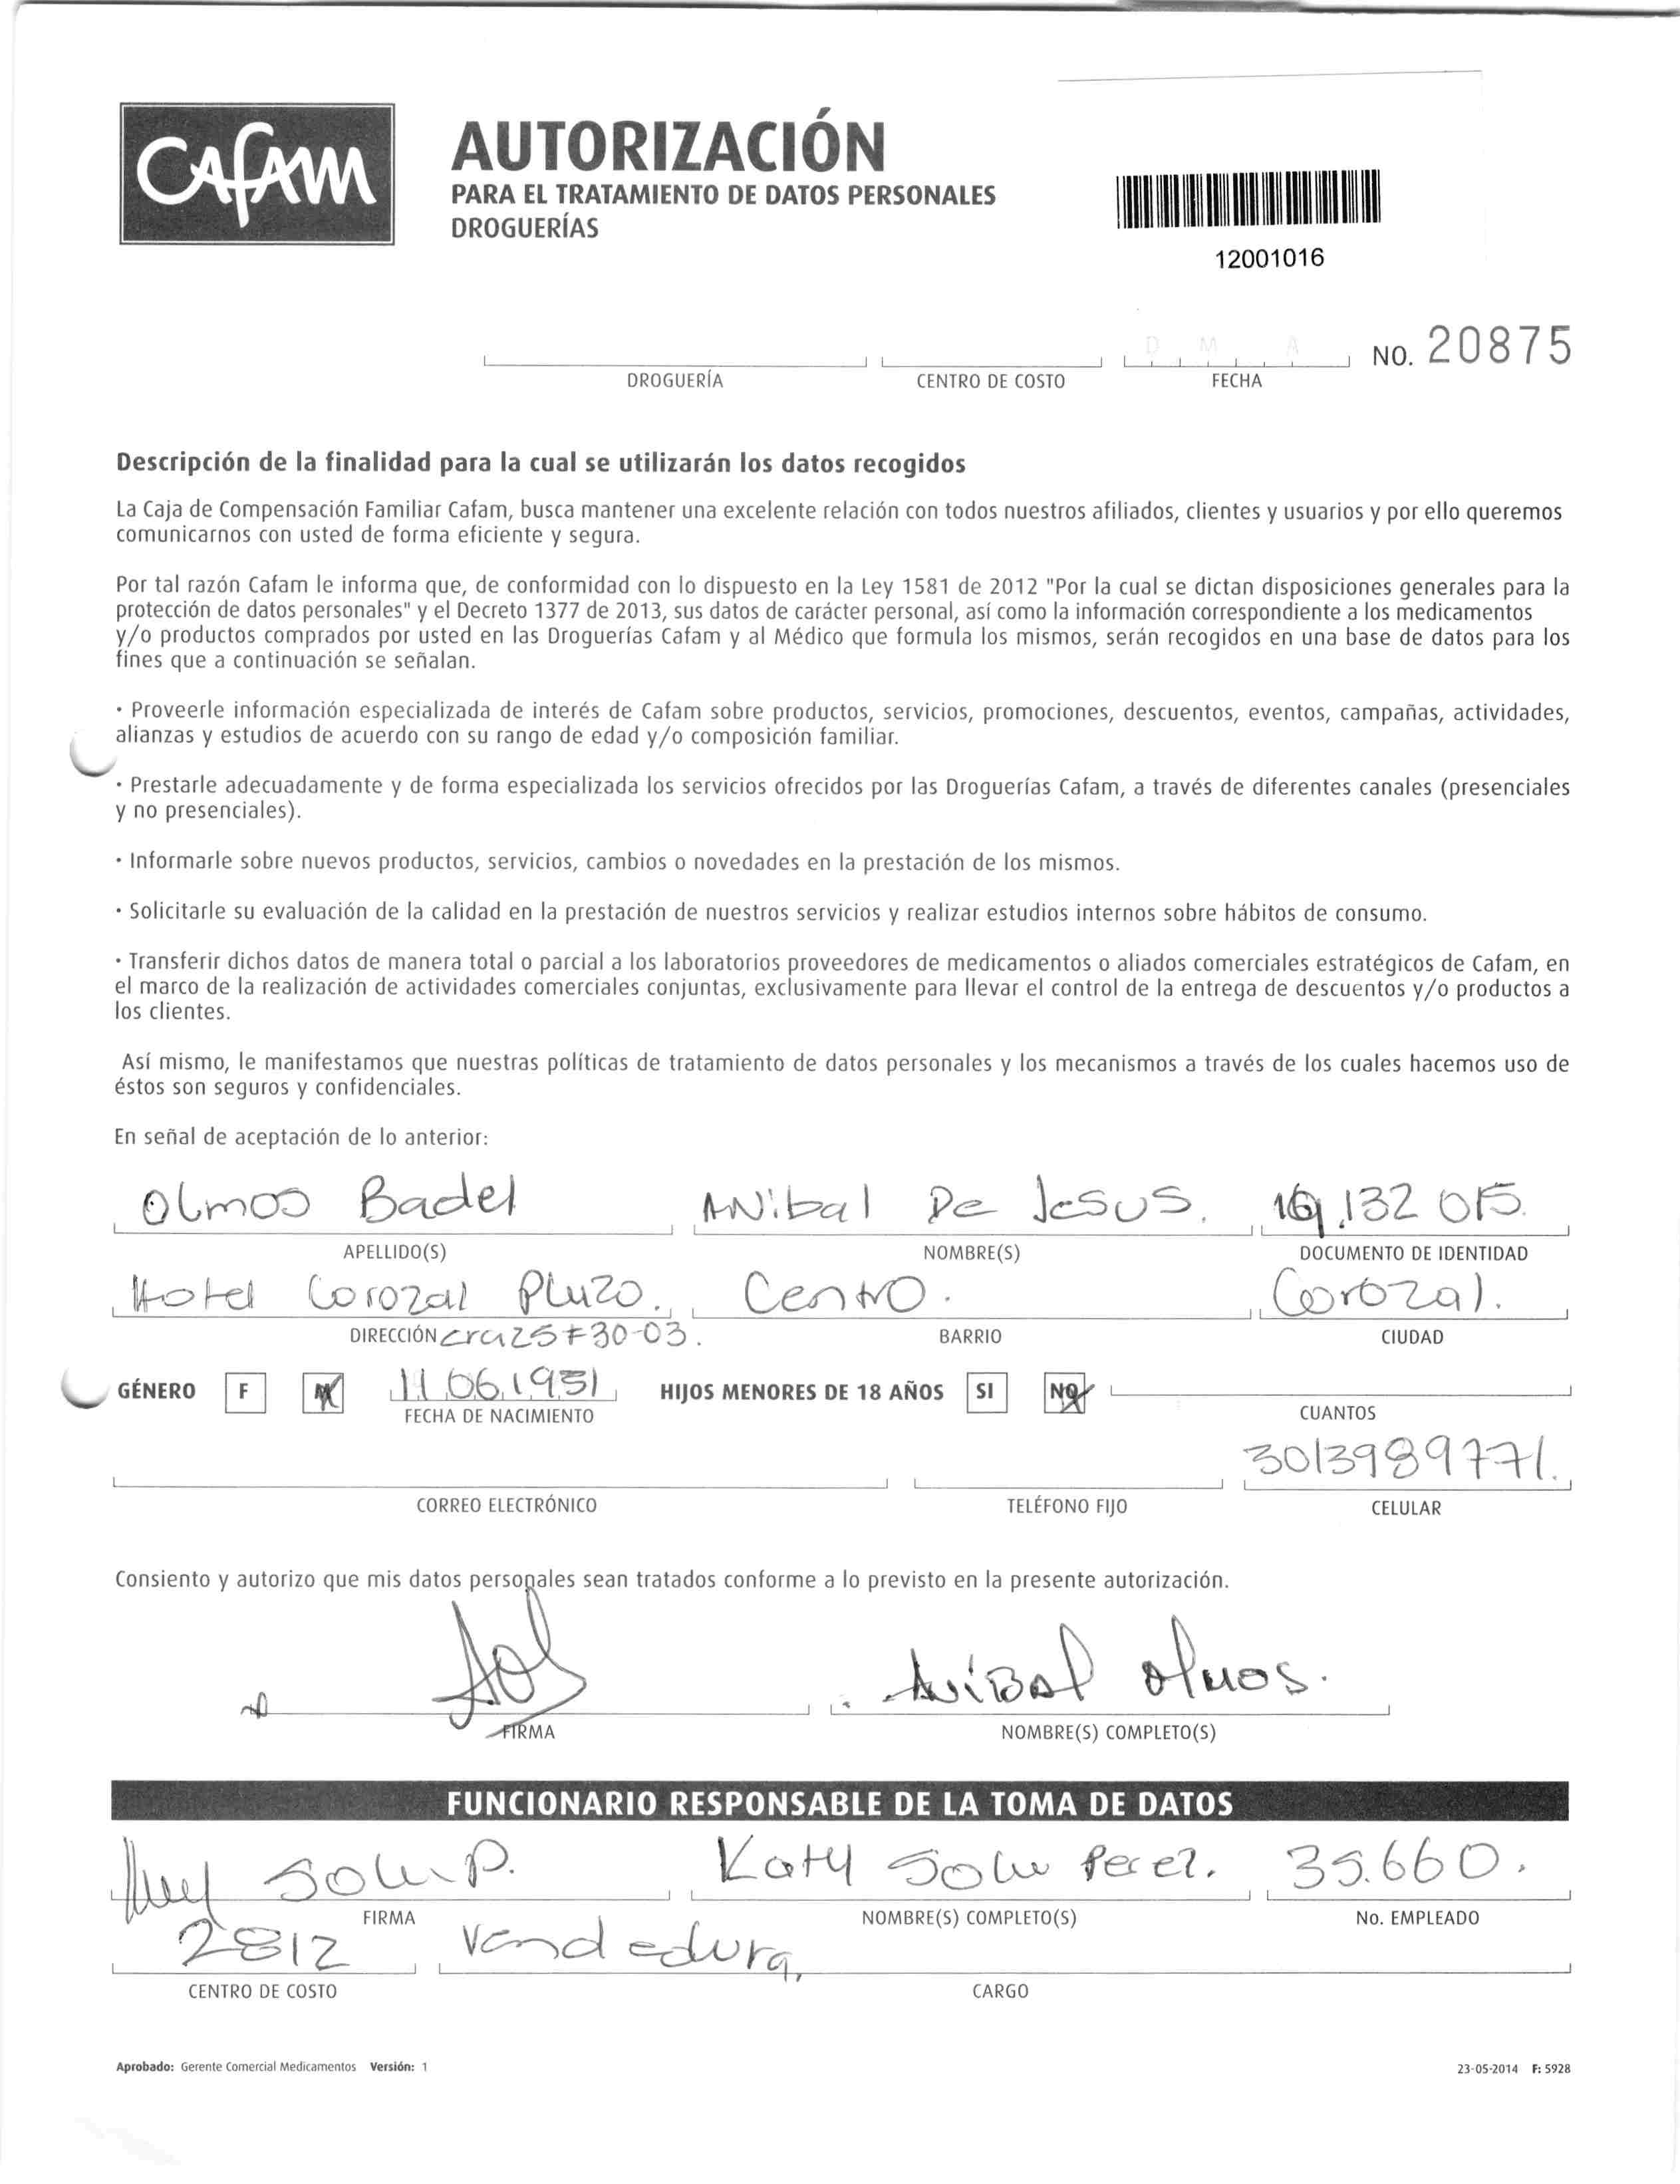 CAFAM
AUTORIZACIÓN
PARA EL TRATAMIENTO DE DATOS PERSONALES
DROGUERÍAS
12001016
D M A
NO. 20875
DROGUERÍA CENTRO DE COSTO FECHA
Descripción de la finalidad para la cual se utilizarán los datos recogidos
La Caja de Compensación Familiar Cafam, busca mantener una excelente relación con todos nuestros afiliados, clientes y usuarios y por ello queremos
comunicarnos con usted de forma eficiente y segura.
Por tal razón Cafam le informa que, de conformidad con lo dispuesto en la Ley 1581 de 2012 "Por la cual se dictan disposiciones generales para la
protección de datos personales" y el Decreto 1377 de 2013, sus datos de carácter personal, así como la información correspondiente a los medicamentos
y/o productos comprados por usted en las Droguerías Cafam y al Médico que formula los mismos, serán recogidos en una base de datos para los
fines que a continuación se señalan.
· Proveerle información especializada de interés de Cafam sobre productos, servicios, promociones, descuentos, eventos, campañas, actividades,
alianzas y estudios de acuerdo con su rango de edad y/o composición familiar.
· Prestarle adecuadamente y de forma especializada los servicios ofrecidos por las Droguerías Cafam, a través de diferentes canales (presenciales
y no presenciales).
· Informarle sobre nuevos productos, servicios, cambios o novedades en la prestación de los mismos.
· Solicitarle su evaluación de la calidad en la prestación de nuestros servicios y realizar estudios internos sobre hábitos de consumo.
· Transferir dichos datos de manera total o parcial a los laboratorios proveedores de medicamentos o aliados comerciales estratégicos de Cafam, en
el marco de la realización de actividades comerciales conjuntas, exclusivamente para llevar el control de la entrega de descuentos y/o productos a
los clientes.
Así mismo, le manifestamos que nuestras políticas de tratamiento de datos personales y los mecanismos a través de los cuales hacemos uso de
éstos son seguros y confidenciales.
En señal de aceptación de lo anterior:
Olmos Badel ANibal De Jesus. 132 015.
APELLIDO(S) NOMBRE(S) DOCUMENTO DE IDENTIDAD
Hotel Corozal Pluzo. Centro. Corozal.
DIRECCIÓN cra 25 # 30-03. BARRIO CIUDAD
GÉNERO F M 11 06 1951 HIJOS MENORES DE 18 AÑOS SI NO
FECHA DE NACIMIENTO CUANTOS
3013989771.
CORREO ELECTRÓNICO TELÉFONO FIJO CELULAR
Consiento y autorizo que mis datos personales sean tratados conforme a lo previsto en la presente autorización.
Anibal Olmos.
FIRMA NOMBRE(S) COMPLETO(S)
FUNCIONARIO RESPONSABLE DE LA TOMA DE DATOS
Katy Perez. 35.660.
FIRMA NOMBRE(S) COMPLETO(S) No. EMPLEADO
2812 Vendedura,
CENTRO DE COSTO CARGO
Aprobado: Gerente Comercial Medicamentos Versión: 1 23-05-2014 F: 5928